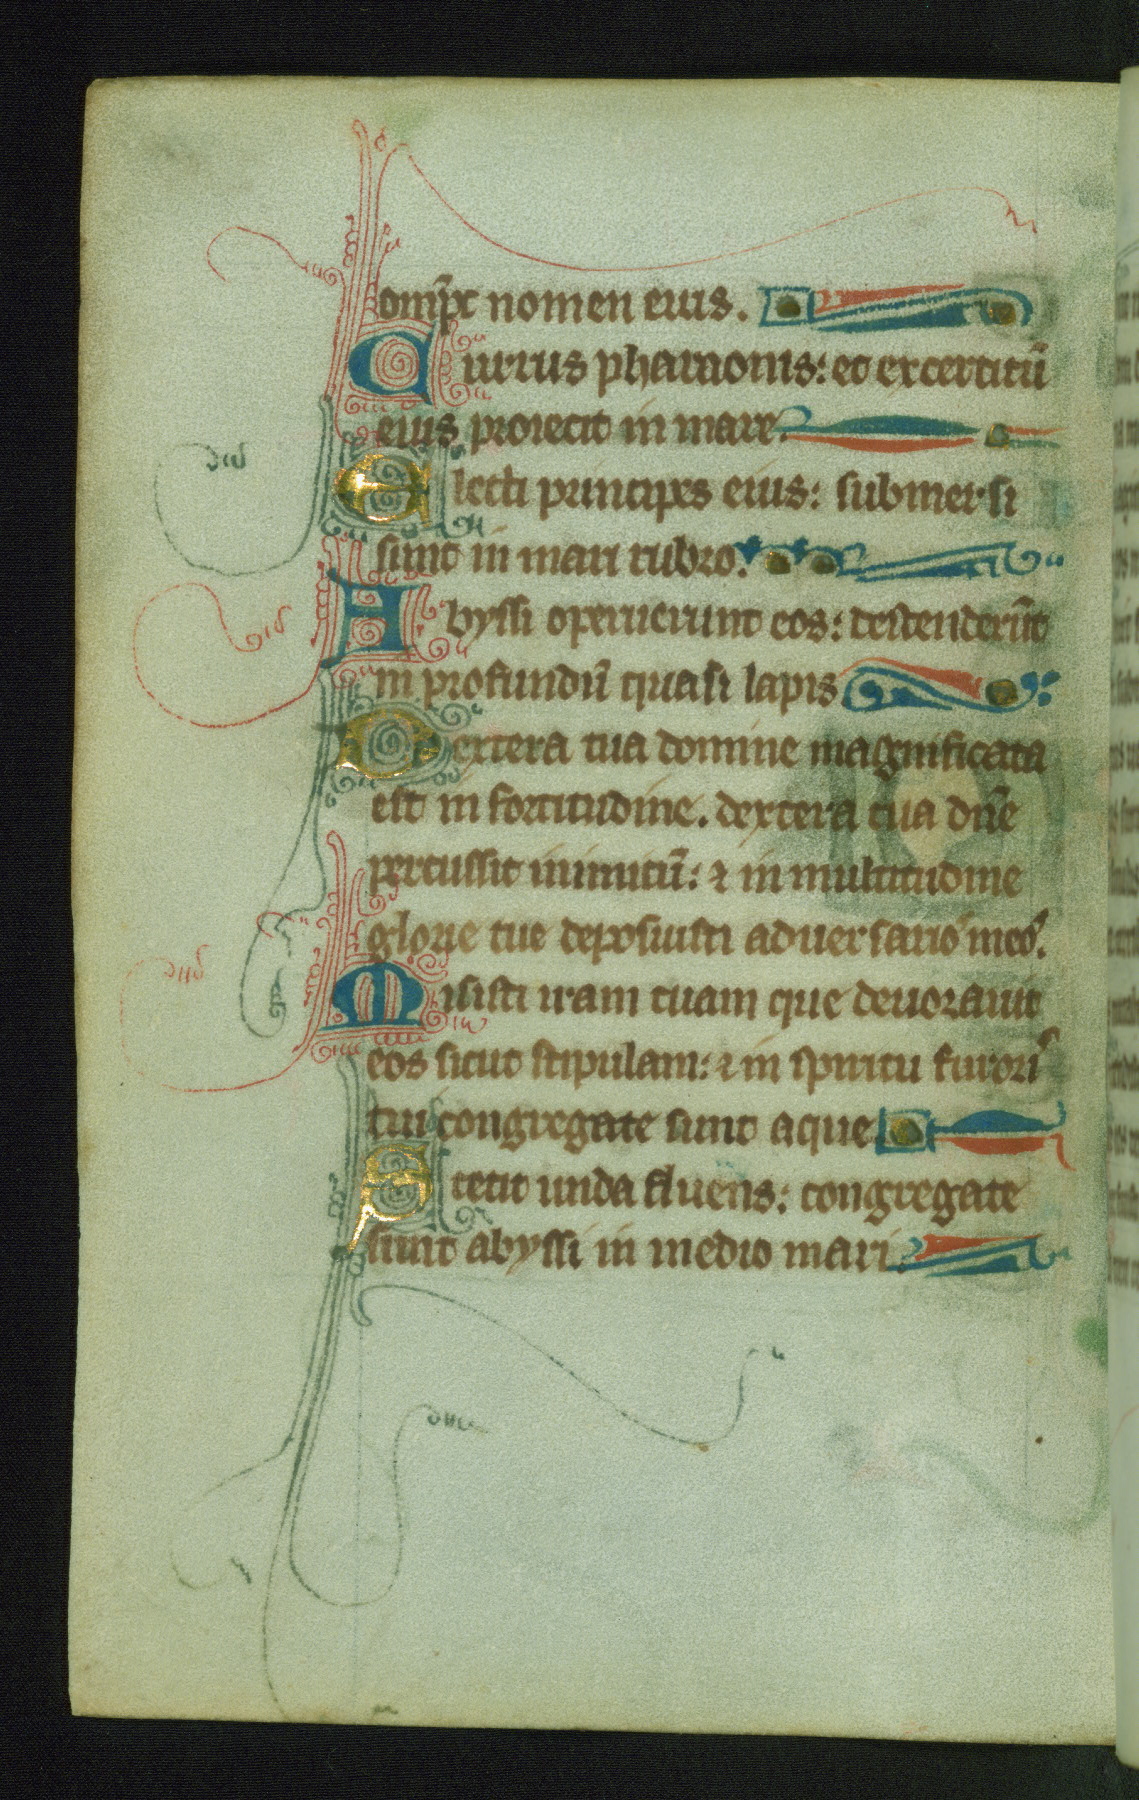 omp̄c nomen eius.
Currus pharaonis: et excercitū
eius proiecit in mare.
Electi principes eius: submersi
sunt in mari rubro.
Abyssi operuerunt eos: descenderūt
in profundū quasi lapis
Dextera tua domine magnificata
est in fortitudine. dextera tua dn̄e
percussit inimicū: ⁊ in multitudine
glorie tue deposuisti aduersario meo.
Misisti iram tuam que deuorauit
eos sicut stipulam: ⁊ in spiritu furori
tui congregate sunt aque
Stetit unda fluens: congregate
sunt abyssi in medio mari.